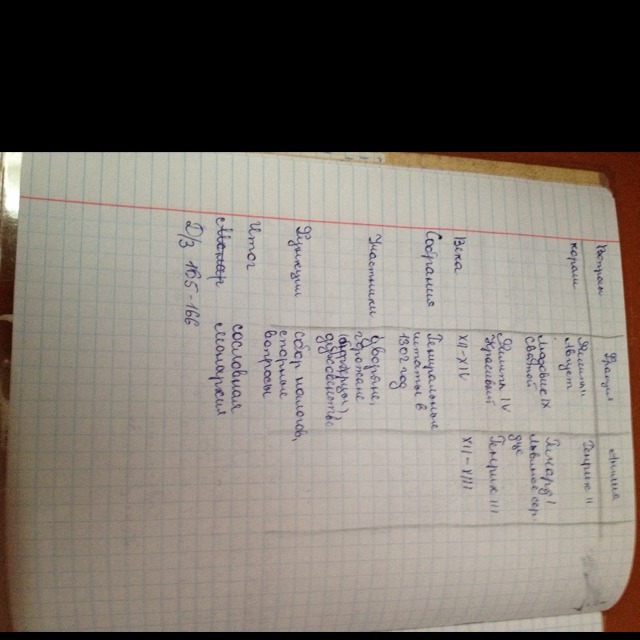 Вопросы Франция Англия
короли Филипп Генрих II
Август
Людовик IX Ричард I
Святой Львиное сер
дце
Филипп IV Генрих III
Красивый
Века XII-XIV XII-XIII
Собрания Генеральные
штаты в
1302 год
Участники Дворяне,
горожане
духовенство
Функции сбор налогов,
спорные
вопросы
Итог сословная
монархия
Д/з 165-166